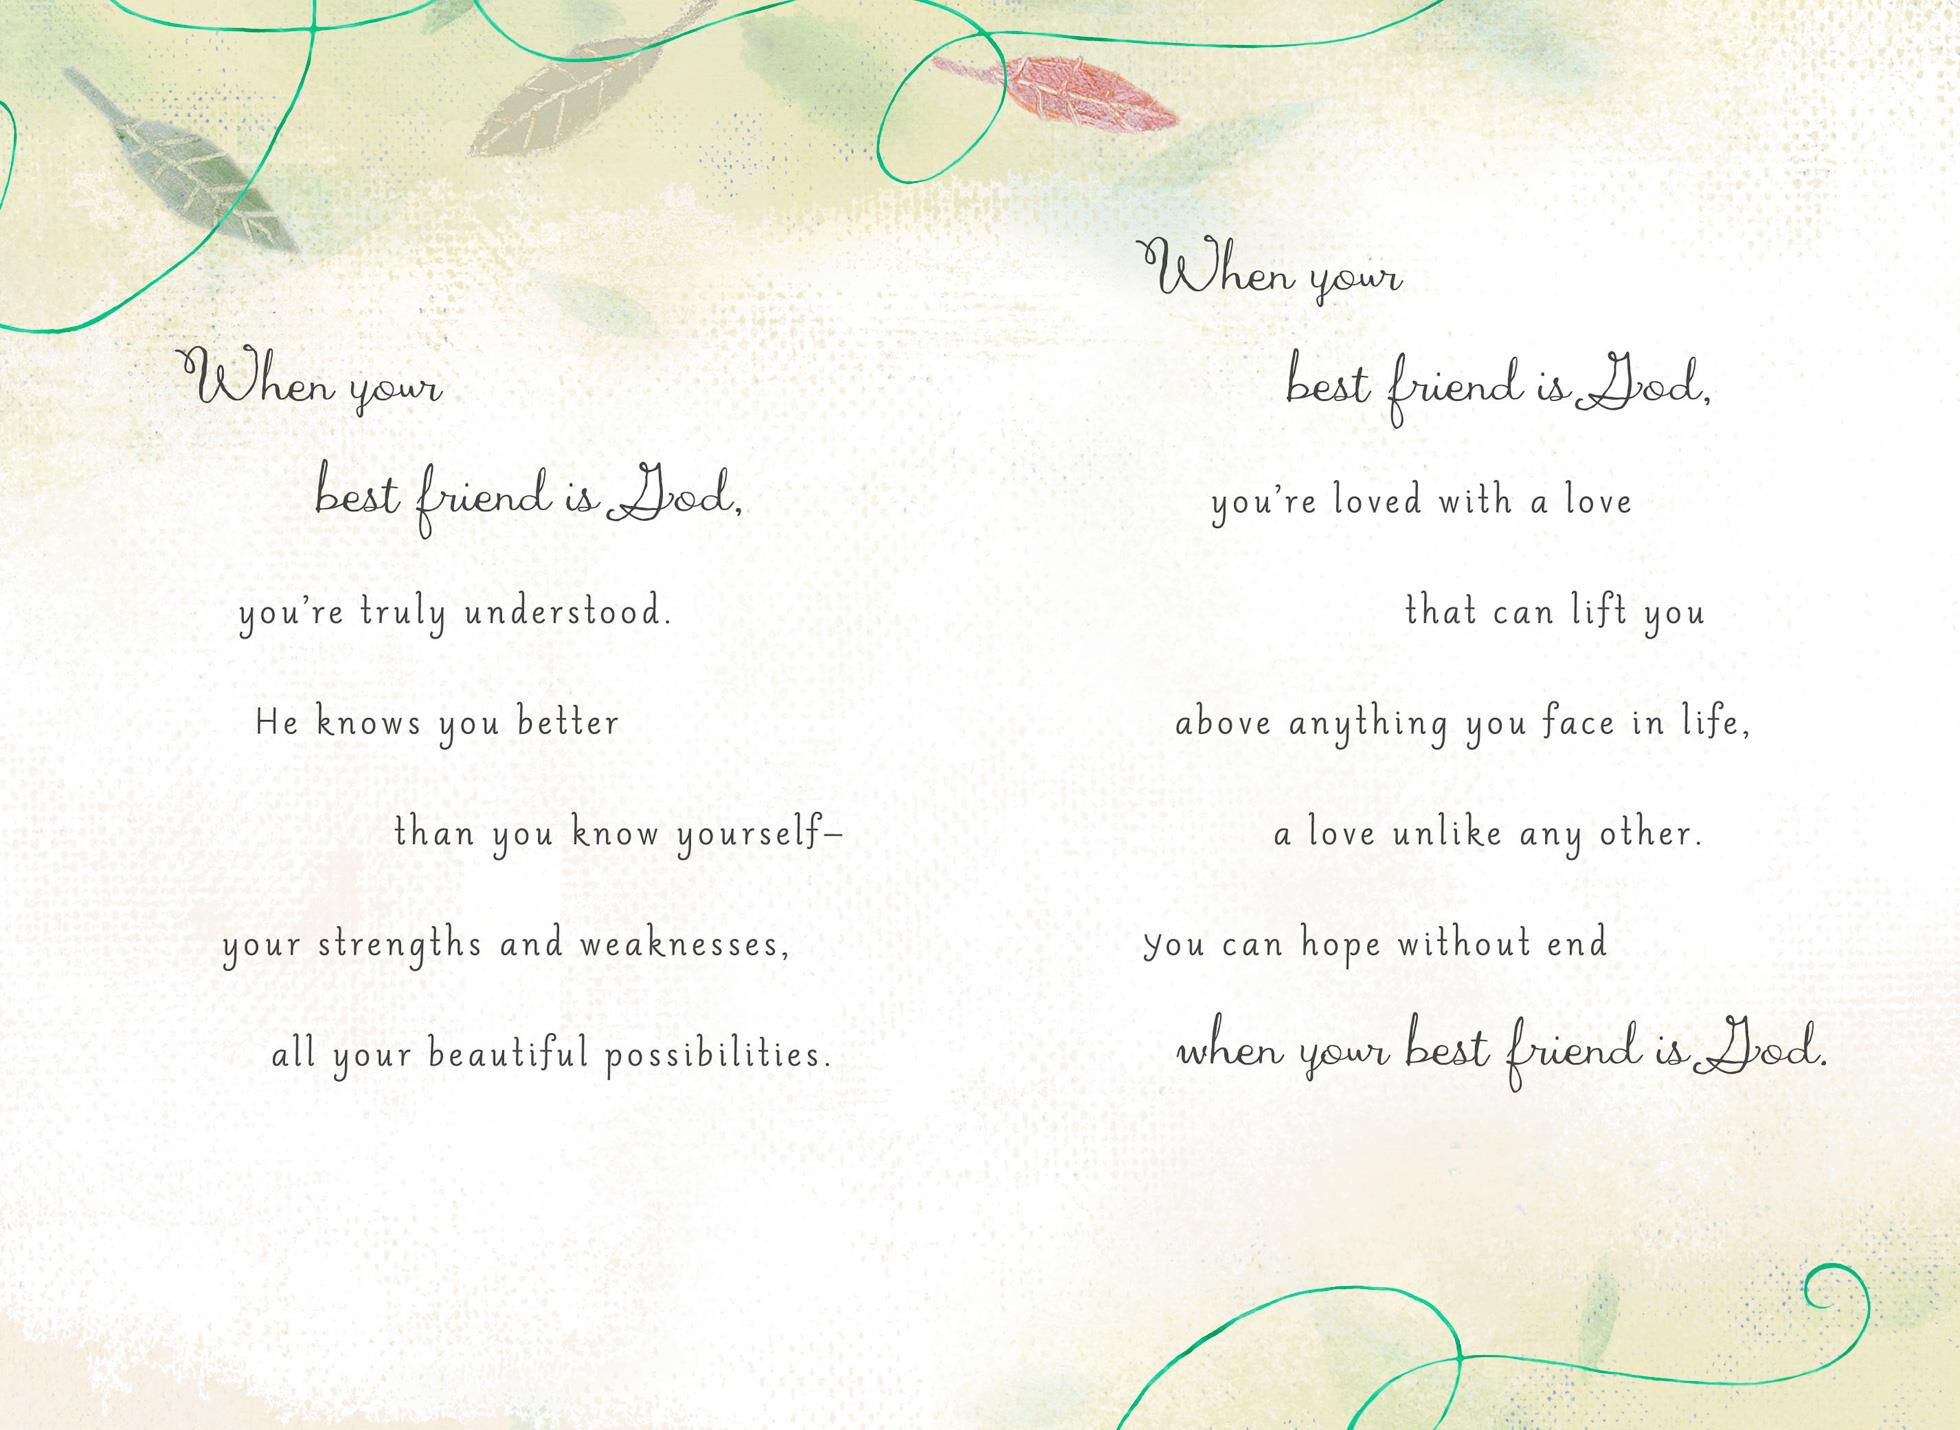 When your
best friend is God,
you're truly understood.
He knows you better
than you know yourself–
your strengths and weaknesses,
all your beautiful possibilities.
When your
best friend is God,
you're loved with a love
that can lift you
above anything you face in life,
a love unlike any other.
You can hope without end
when your best friend is God.